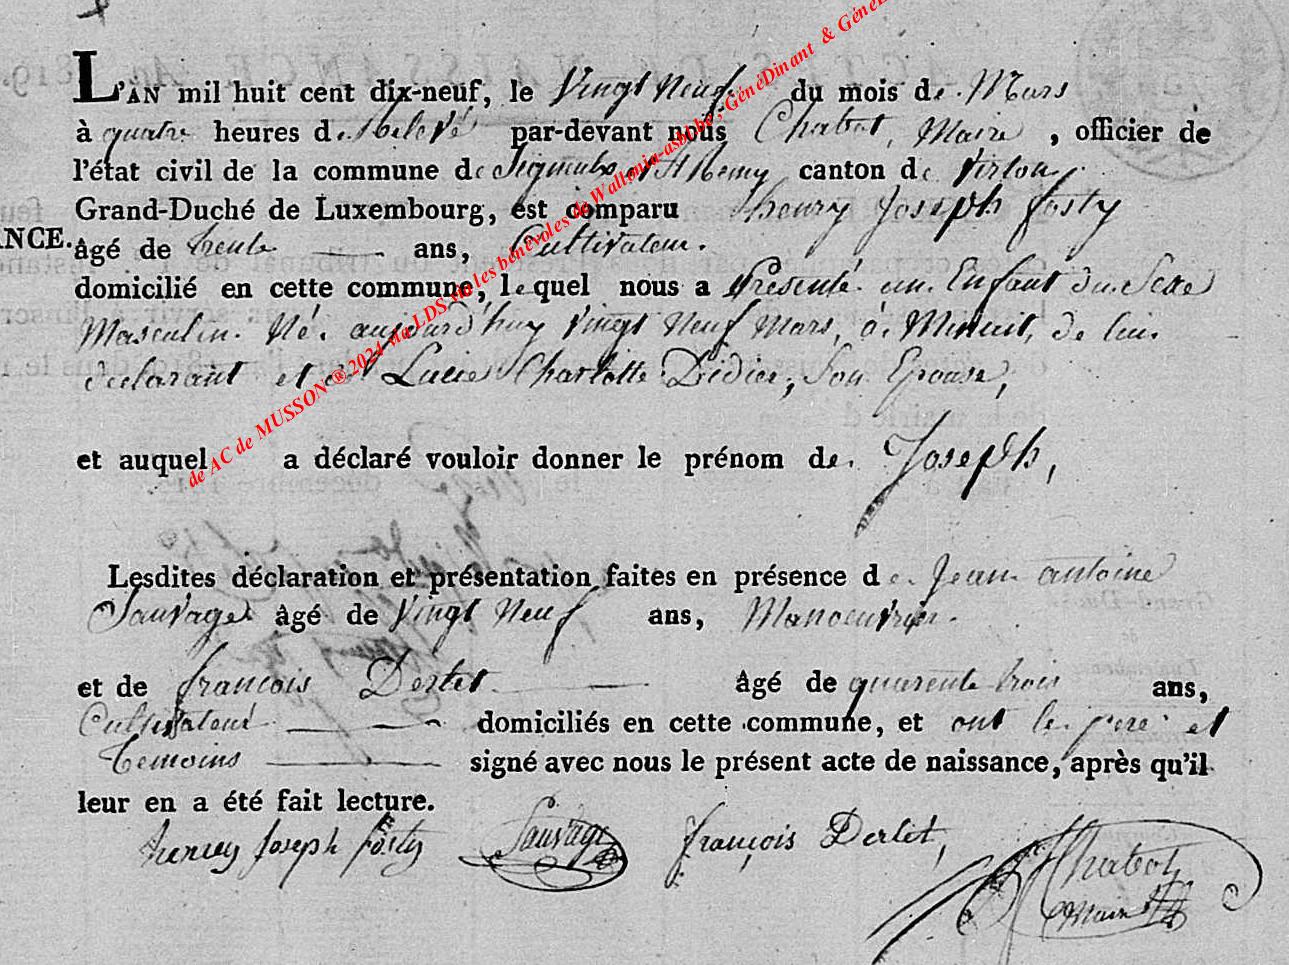 L'AN mil huit cent dix-neuf, le Vingt Neuf du mois de Mars
à quatre heures de Relevé par-devant nous Chabot, Maire, officier de
l'état civil de la commune de Signeulx et St Remy canton de Virton
Grand-Duché de Luxembourg, est comparu henry Joseph fosty
ANCE. âgé de trente ans, Cultivateur.
domicilié en cette commune, lequel nous a Présenté un Enfant du Sexe
Masculin. Né. aujourd'huy Vingt Neuf Mars, à Minuit, de lui
declarant et de Lucie Charlotte Didier, Son Epouse,
et auquel a déclaré vouloir donner le prénom de Joseph,
Lesdites déclaration et présentation faites en présence de Jean antoine
Sauvage âgé de Vingt Neuf ans, Manoeuvrier.
et de françois Dertet âgé de quarente trois ans,
Cultivateur domiciliés en cette commune, et ont le pere et
Temoins signé avec nous le présent acte de naissance, après qu'il
leur en a été fait lecture.
henrey Joseph fosty Sauvage françois Dertet, Chabot
Maire
de AC de MUSSON ® 2024 via LDS et les bénévoles de Wallonia-asbl.be, GénéDinant & Géné